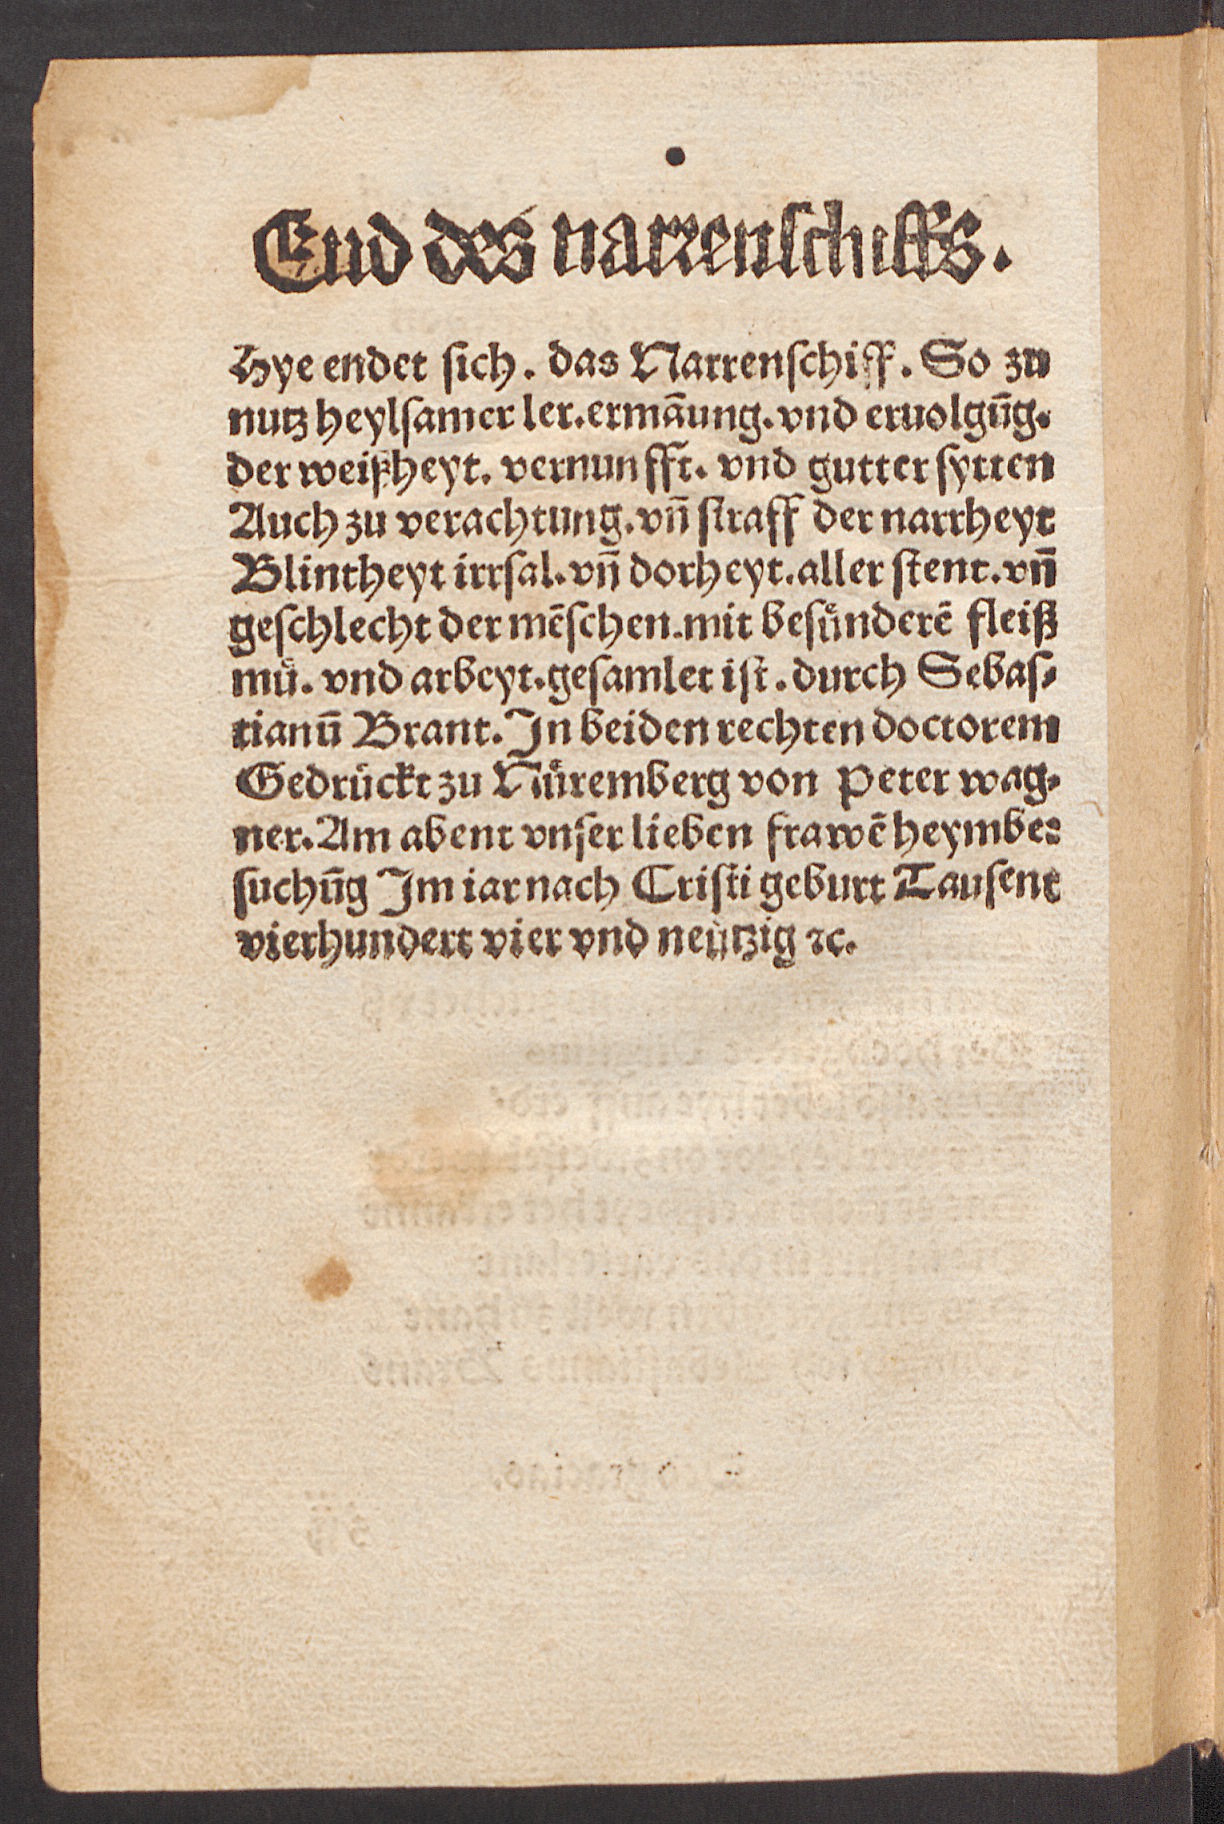 End des narrenschiffs.
Hye endet sich. das Narrenschiff. So zu
nutz heylsamer ler. ermãung. vnd eruolgũg.
der weißheyt. vernunfft. vnd gutter sytten
Auch zu verachtung. vñ straff der narrheyt
Blintheyt irrsal. vñ dorheyt. aller stent. vñ
geschlecht der mẽschen. mit besůnderẽ fleiß
mů. vnd arbeyt. gesamlet ist. durch Sebas⸗
tianũ Brant. In beiden rechten doctorem
Gedrůckt zu Nůremberg von Peter wag⸗
ner. Am abent vnser lieben frawẽ heymbe⸗
suchũg Im iar nach Cristi geburt Tausent
vierhundert vier vnd neůtzig ⁊c.